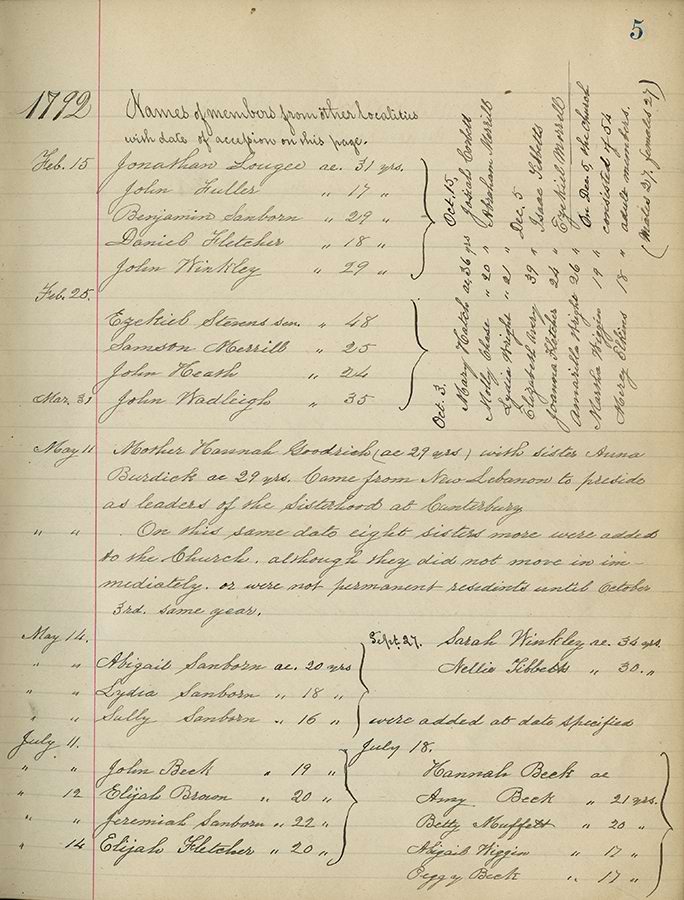 5
1792 Names of members from other localities
with date of accession on this page.
Feb. 15 Jonathan Lougee ae. 31 yrs.
John Fuller " 17 "
Benjamin Sanborn " 29 "
Daniel Fletcher " 18 "
John Winkley " 29 "
Feb. 25.
Ezekiel Stevens sen. " 48
Samson Merrill " 25
John Heath " 24
Mar. 31 John Wadleigh " 35
Oct. 3. Mary Hatch ae. 36 yrs
Molly Chase " 20 "
Lydia Wright " 21 "
Elizabeth Avery 39 "
Joanna Fletcher 24 "
Amarilla Wright 26 "
Martha Wiggin 19 "
Mercy Elkins 18 "
Oct. 15, Josiah Corbett
Abraham Merrill
Dec. 5 Isaac Tibbetts
Ezekiel Merrill
On Dec. 5, the Church
consisted of 54
adult members.
(Males 27, females 27)
May 11 Mother Hannah Goodrich (ae 29 yrs) with sister Anna
Burdick ae 29 yrs. Came from New Lebanon to preside
as leaders of the Sisterhood at Canterbury
" " On this same date eight sisters more were added
to the Church, although they did not move in im-
mediately, or were not permanent residents until October
3rd. same year.
May 14.
" " Abigail Sanborn ae. 20 yrs
" " Lydia Sanborn " 18 "
" " Sally Sanborn " 16 "
Sept. 27. Sarah Winkley ae. 34 yrs.
Nellie Tibbetts " 30. "
were added at date specified
July 11.
" " John Beck " 19 "
" 12 Elijah Brown " 20 "
" " Jeremiah Sanborn " 22 "
" 14 Elijah Fletcher " 20 "
July 18.
Hannah Beck ae
Amy Beck " 21 yrs.
Betty Muffett " 20 "
Abigail Wiggin " 17 "
Peggy Beck " 17 "